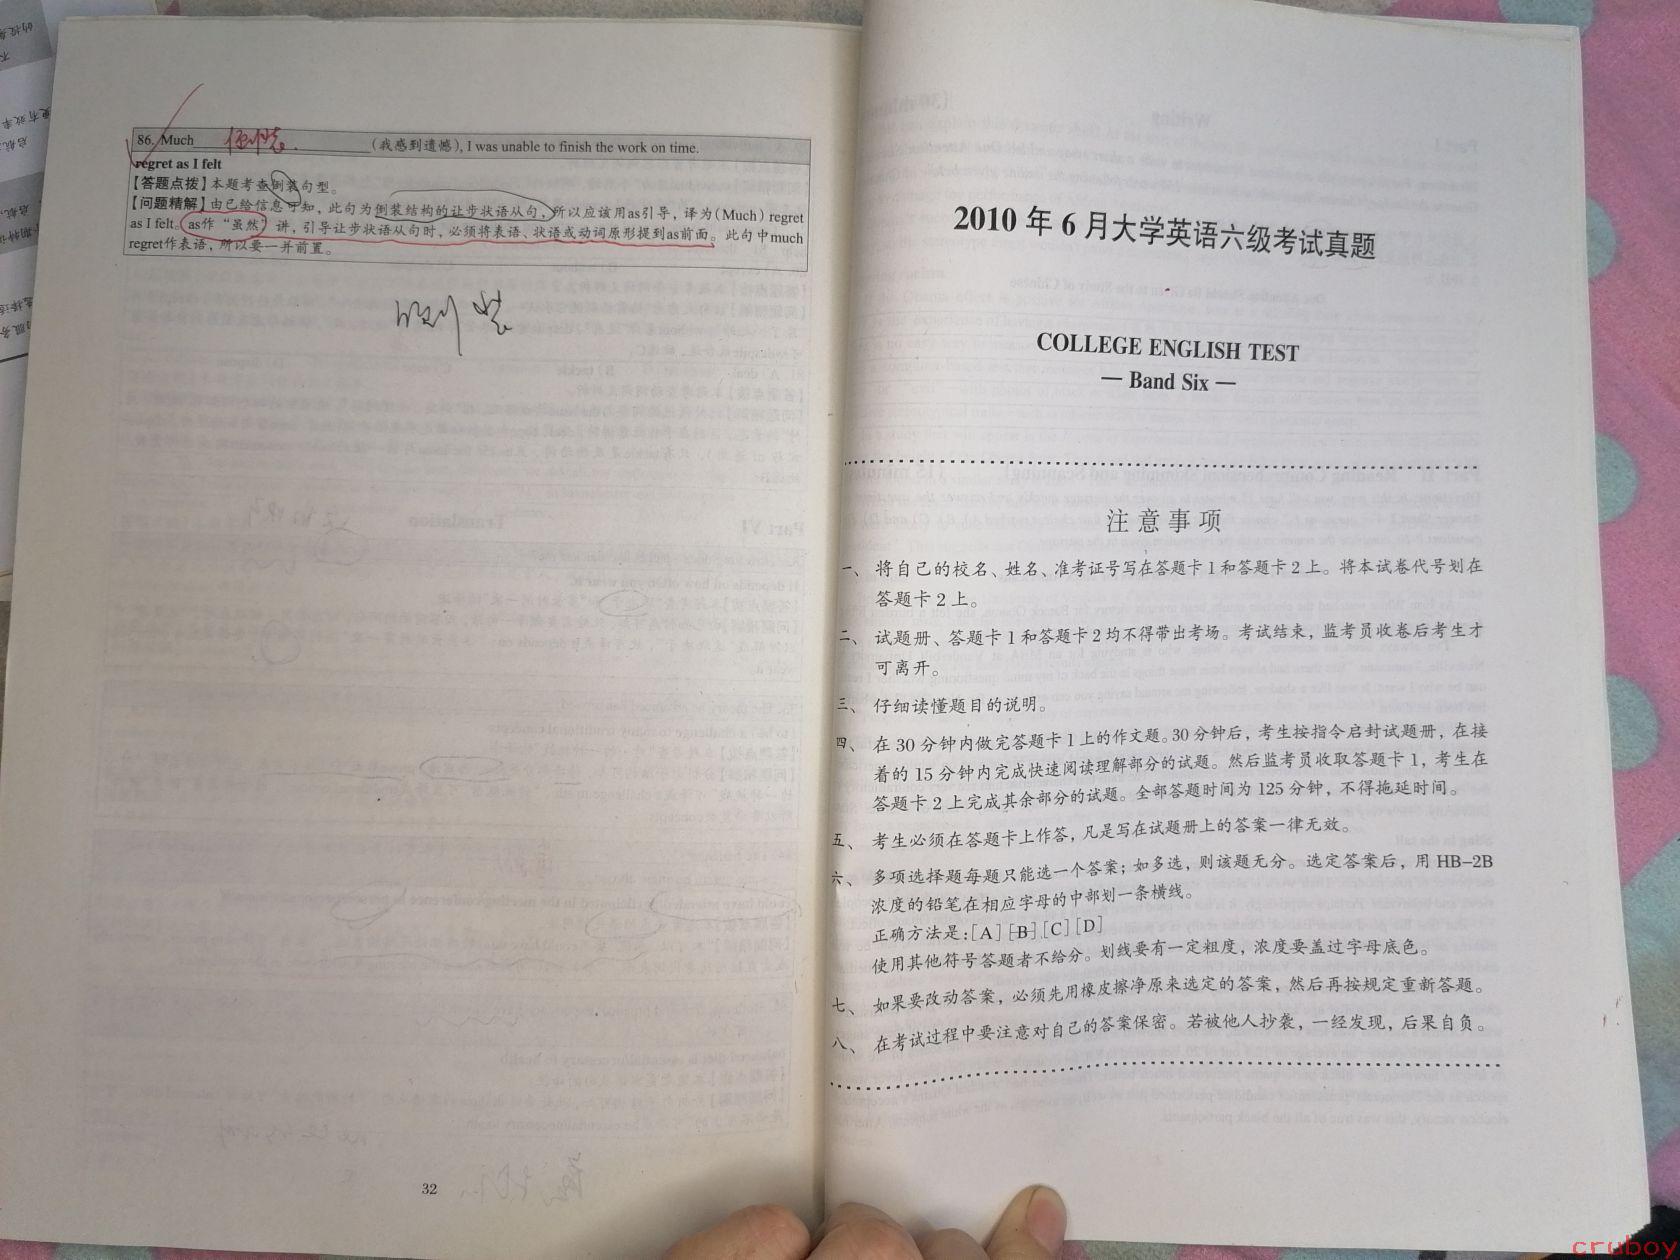 86. Much 倒装. (我感到遗憾), I was unable to finish the work on time.
regret as I felt
【答题点拨】本题考查倒装句型。
【问题精解】由已给信息可知，此句为倒装结构的让步状语从句，所以应该用as引导，译为(Much) regret
as I felt。as作“虽然”讲，引导让步状语从句时，必须将表语、状语或动词原形提到as前面。此句中much
regret作表语，所以要一并前置。
倒装
32
2010 年 6 月大学英语六级考试真题
COLLEGE ENGLISH TEST
— Band Six —
注意事项
一、将自己的校名、姓名、准考证号写在答题卡 1 和答题卡 2 上。将本试卷代号划在
答题卡 2 上。
二、试题册、答题卡 1 和答题卡 2 均不得带出考场。考试结束，监考员收卷后考生才
可离开。
三、仔细读懂题目的说明。
四、在 30 分钟内做完答题卡 1 上的作文题。30 分钟后，考生按指令启封试题册，在接
着的 15 分钟内完成快速阅读理解部分的试题。然后监考员收取答题卡 1，考生在
答题卡 2 上完成其余部分的试题。全部答题时间为 125 分钟，不得拖延时间。
五、考生必须在答题卡上作答，凡是写在试题册上的答案一律无效。
六、多项选择题每题只能选一个答案；如多选，则该题无分。选定答案后，用 HB-2B
浓度的铅笔在相应字母的中部划一条横线。
正确方法是：[A] [B] [C] [D]
使用其他符号答题者不给分。划线要有一定粗度，浓度要盖过字母底色。
七、如果要改动答案，必须先用橡皮擦净原来选定的答案，然后再按规定重新答题。
八、在考试过程中要注意对自己的答案保密。若被他人抄袭，一经发现，后果自负。
cruboy